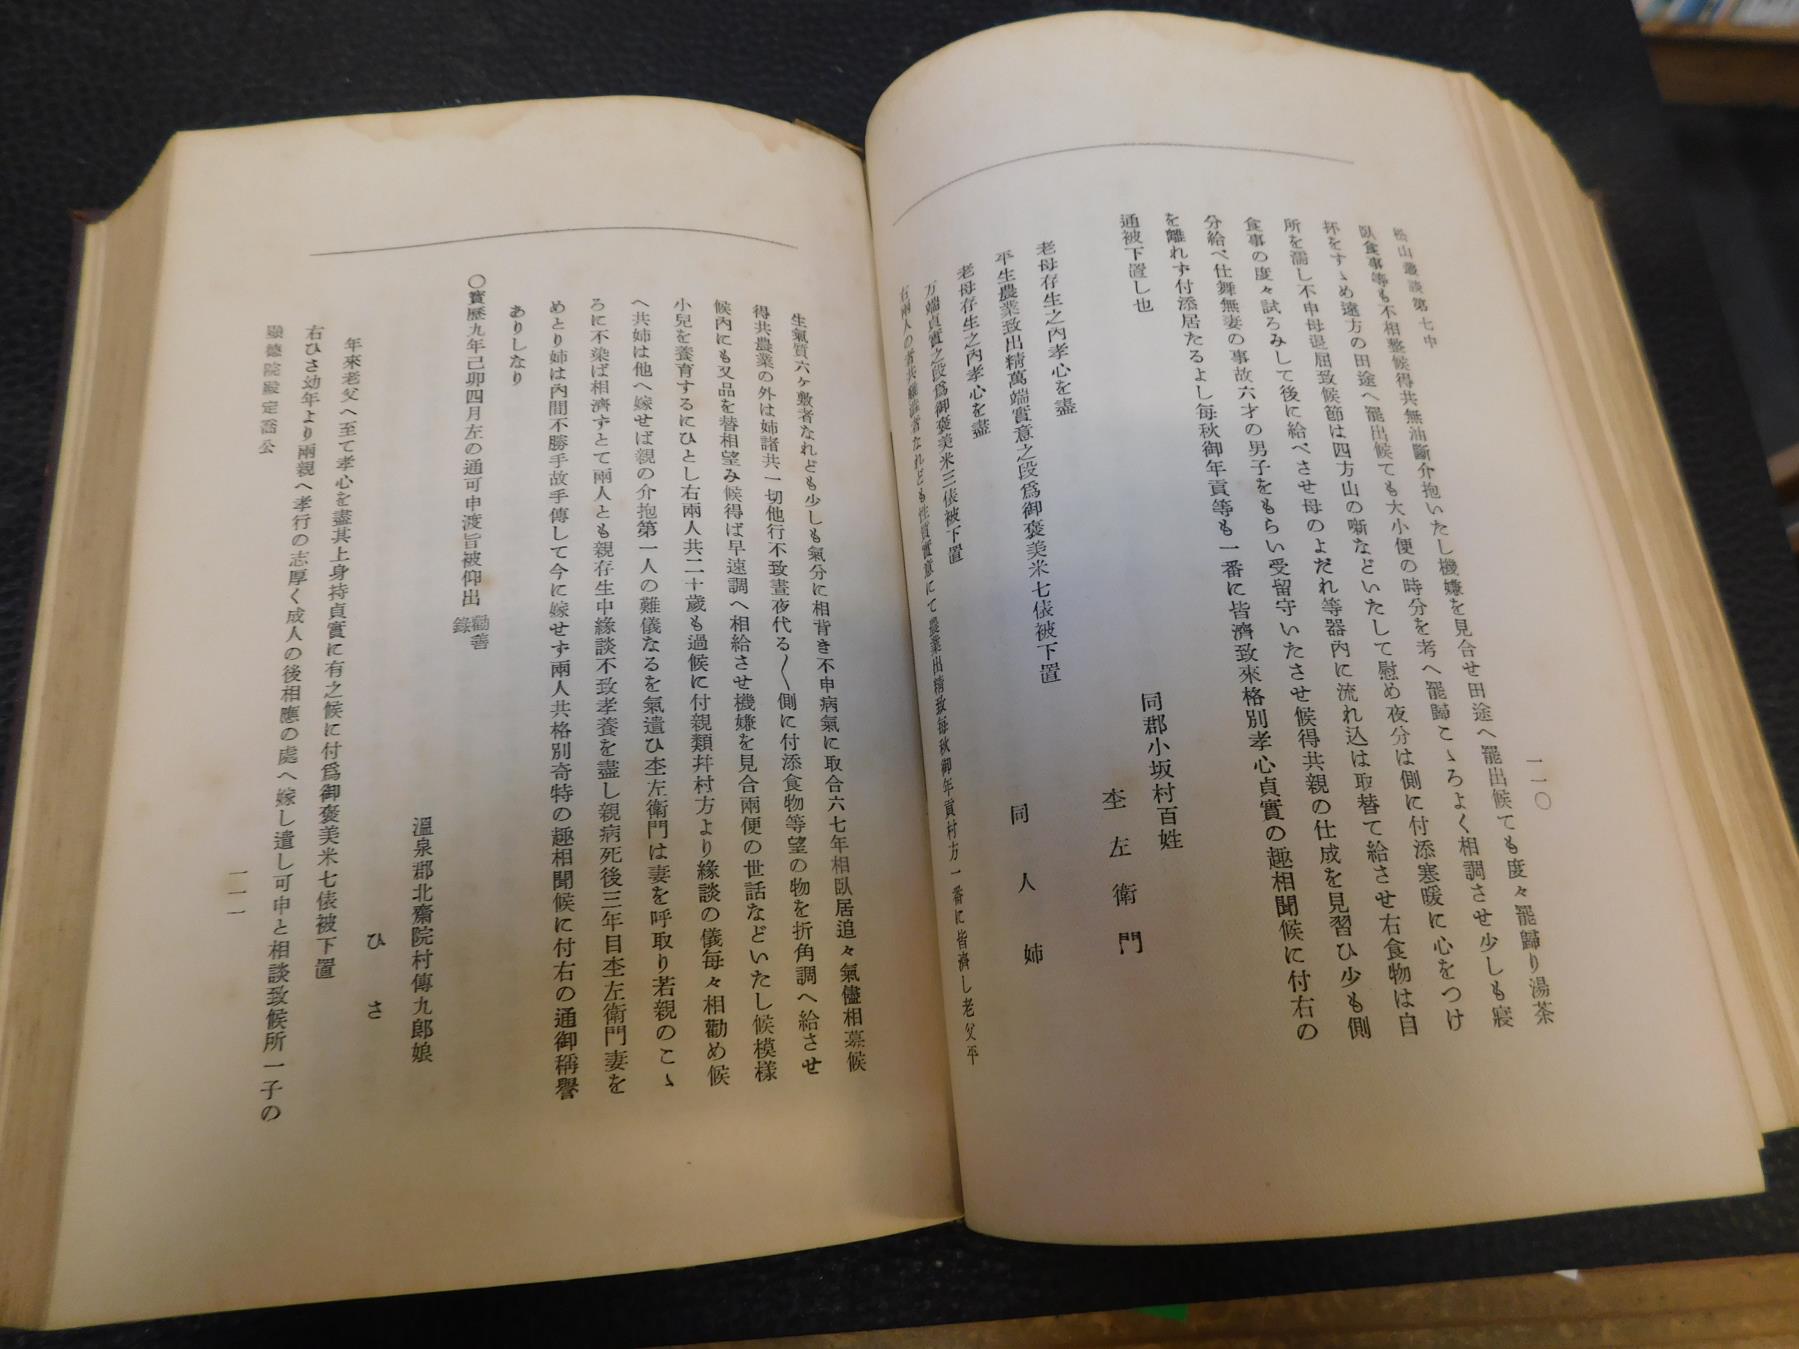 松山叢談第七中
一一〇
臥食事等も不相整候得共無油斷介抱いたし機嫌を見合せ田途へ罷出候ても度々罷歸り湯茶
杯をすゝめ遠方の田途へ罷出候ても大小便の時分を考へ罷歸こゝろよく相調させ少しも寢
所を濡し不申母退屈致候節は四方山の噺などいたして慰め夜分は側に付添寒暖に心をつけ
食事の度々試ろみして後に給べさせ母のよだれ等器內に流れ込は取替て給させ右食物は自
分給べ仕舞無妻の事故六才の男子をもらい受留守いたさせ候得共親の仕成を見習ひ少も側
を離れず付添居たるよし每秋御年貢等も一番に皆濟致來格別孝心貞實の趣相聞候に付右の
通被下置し也
同郡小坂村百姓
杢左衛門
老母存生之內孝心を盡
平生農業致出精萬端實意之段爲御褒美米七俵被下置
同人姉
老母存生之內孝心を盡
万端貞實之段爲御褒美米三俵被下置
右兩人の者共難澁者なれども性質實意にて農業出精致每秋御年貢村方一番に皆濟し老父平
生氣質六ケ敷者なれども少しも氣分に相背き不申病氣に取合六七年相臥居追々氣儘相募候
得共農業の外は姉諸共一切他行不致晝夜代る〱側に付添食物等望の物を折角調へ給させ
候內にも又品を替相望み候得ば早速調へ相給させ機嫌を見合兩便の世話などいたし候模樣
小兒を養育するにひとし右兩人共二十歲も過候に付親類幷村方より緣談の儀每々相勸め候
へ共姉は他へ嫁せば親の介抱第一人の難儀なるを氣遣ひ杢左衛門は妻を呼取り若親のこゝ
ろに不染ば相濟ずとて兩人とも親存生中緣談不致孝養を盡し親病死後三年目杢左衛門妻を
めとり姉は內間不勝手故手傳して今に嫁せず兩人共格別奇特の趣相聞候に付右の通御稱譽
ありしなり
〇寶曆九年己卯四月左の通可申渡旨被仰出 勸善錄
溫泉郡北齋院村傳九郎娘
ひさ
年來老父へ至て孝心を盡其上身持貞實に有之候に付爲御褒美米七俵被下置
右ひさ幼年より兩親へ孝行の志厚く成人の後相應の處へ嫁し遣し可申と相談致候所一子の
顯德院殿定喬公
一一一